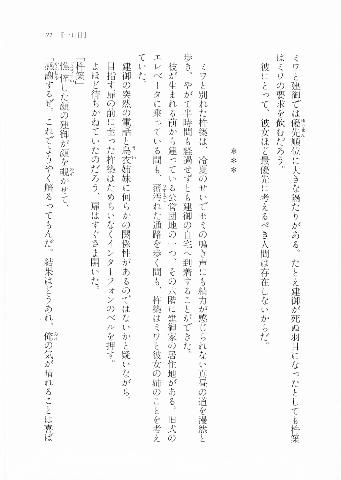 ミワと建御では優先順位に大きな隔たりがある。たとえ建御が死ぬ羽目になったとしても杵築
はミワの要求を飲むだろう。
彼にとって、彼女ほど最優先に考えるべき人間は存在しないからだ。
＊＊＊
ミワと別れた杵築は、冷夏のせいでセミの鳴き声にも活力が感じられない真昼の道を漫然と
歩き、やがて半時間も経過せずとも建御の自宅へ到着することができた。
彼が生まれる前から建っている公営団地の一つ、その六階に建御家の居住地がある。旧式の
エレベータに乗っている間も、薄汚れた通路を歩く間も、杵築はミワと彼女の姉のことを考え
ていた。
建御の突然の電話と姉妹に何らかの関係性があるのではないかと疑いながら、
目指す扉の前に立った杵築はためらいなくインターフォンのベルを押す。
よほど待ちかねていたのだろう、扉はすぐさま開いた。
「杵築」
憔悴した顔の建御が顔を覗かせて、
「感謝するぜ。これでようやく解るってもんだ。結果はどうあれ、俺の気が晴れることは喜ば